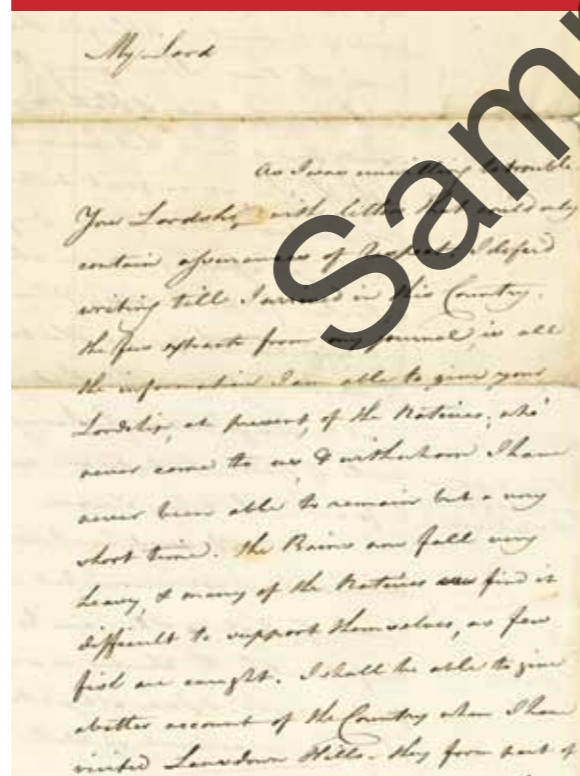 My Lord
As I was unwilling to trouble
Your Lordship with letters that could only
contain assurances of Respect, I defer'd
writing till I arrived in this Country.
the few extracts from my journal is all
the information I am able to give your
Lordship, at present, of the Natives, who'
never come to us & with whom I have
never been able to remain but a very
short time. the Rains now fall very
heavy, & many of the Natives find it
difficult to support themselves, as few
fish are caught. I shall be able to give
abetter account of the Country when I have
visited Lansdown Hills. they form part of
Sam